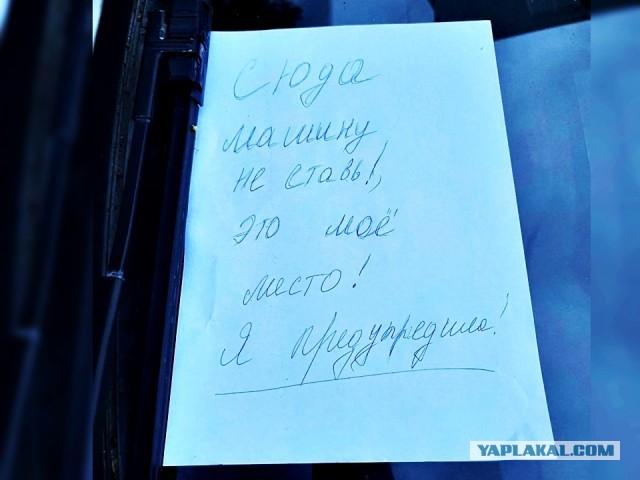 Сюда
машину
не ставь!,
это моё
место!
Я предупредила!
YAPLAKAL.COM